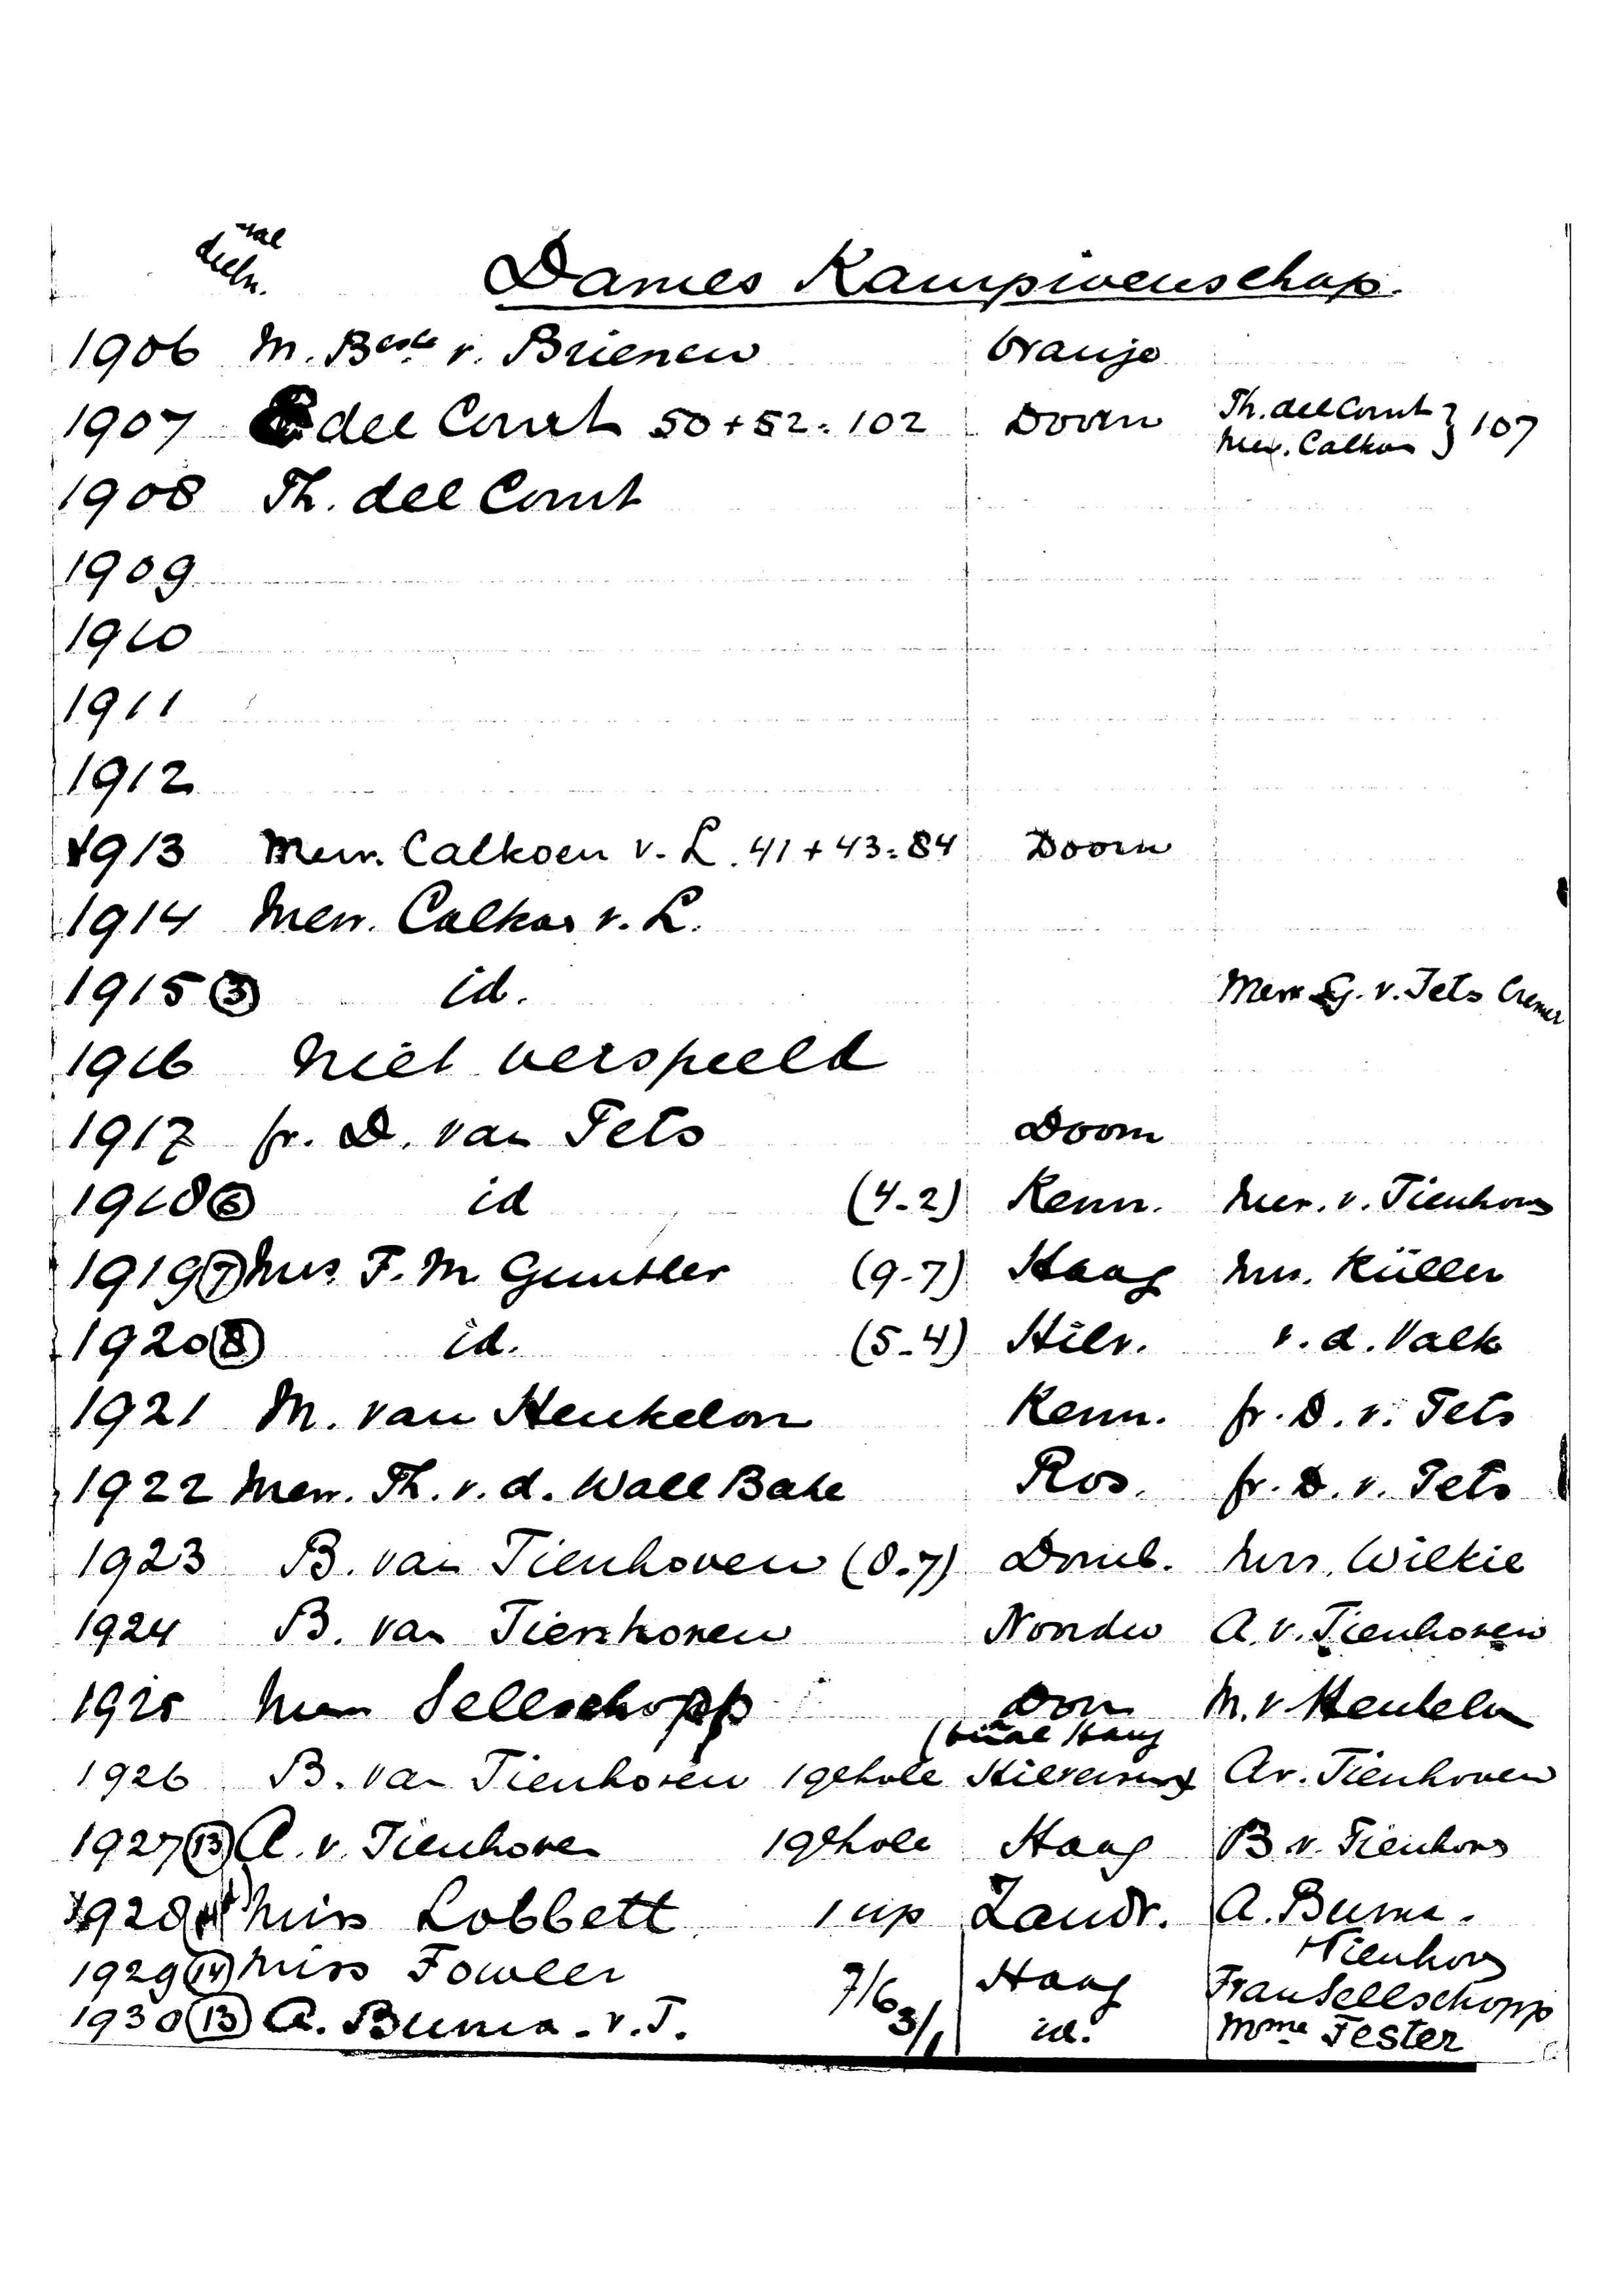 deeln.
Dames Kampioenschap.
1906 M. Besse v. Brienen Oranje
1907 del Court 50+52=102 Doorn Th. del Court } 107
Mevr. Calkoen
1908 Th. del Court
1909
1910
1911
1912
1913 Mevr. Calkoen v. L. 41+43=84 Doorn
1914 Mevr. Calkoen v. L.
1915 (3) id. Mevr G. v. Tets Cremer
1916 Niet verspeeld
1917 fr. D. van Tets Doorn
1918 (6) id (4-2) Kenn. Mevr. v. Tienhoven
1919 (7) Mrs F. M. Gunther (9-7) Haag Mrs. Küller
1920 (8) id. (5-4) Hilv. v. d. Valk
1921 M. van Heukelom Kenn. fr. D. v. Tets
1922 Mevr. Th. v. d. Wall Bake Ros. fr. D. v. Tets
1923 B. van Tienhoven (8-7) Domb. Mrs. Wilkie
1924 B. van Tienhoven Noordw A. v. Tienhoven
1925 Mevr Sellschopp Doorn M. v Heukelom
(finale Haag
1926 B. van Tienhoven 19e hole Hilversum A v. Tienhoven
1927 (13) A. v. Tienhoven 19e hole Haag B v. Tienhoven
1928 Miss Lobbett 1 up Zandv. A. Buma.
Tienhoven
1929 (14) Miss Fowler 7/6 Haag Frau Sellschopp
1930 (13) A. Buma - v. T. 3/1 id. Mme Fester